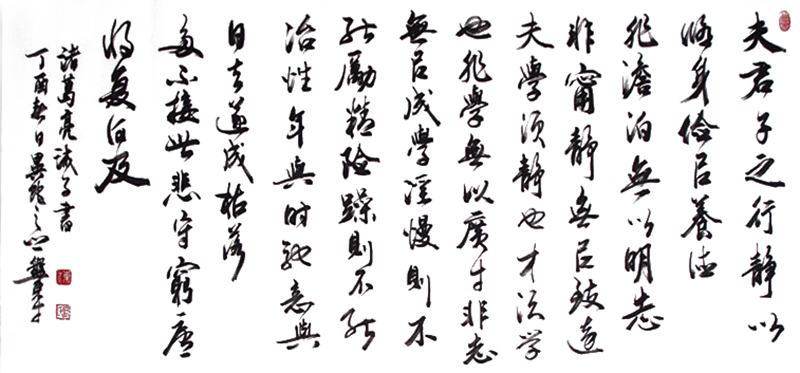 夫君子之行静以
修身儉以養德
非澹泊無以明志
非甯静無以致遠
夫學須静也才須学
也非學無以廣才非志
無以成學淫慢則不
能勵精險躁則不能
冶性年與時馳意與
日去遂成枯落
多不接世悲守窮廬
將復何及
諸葛亮誡子書
丁酉春日